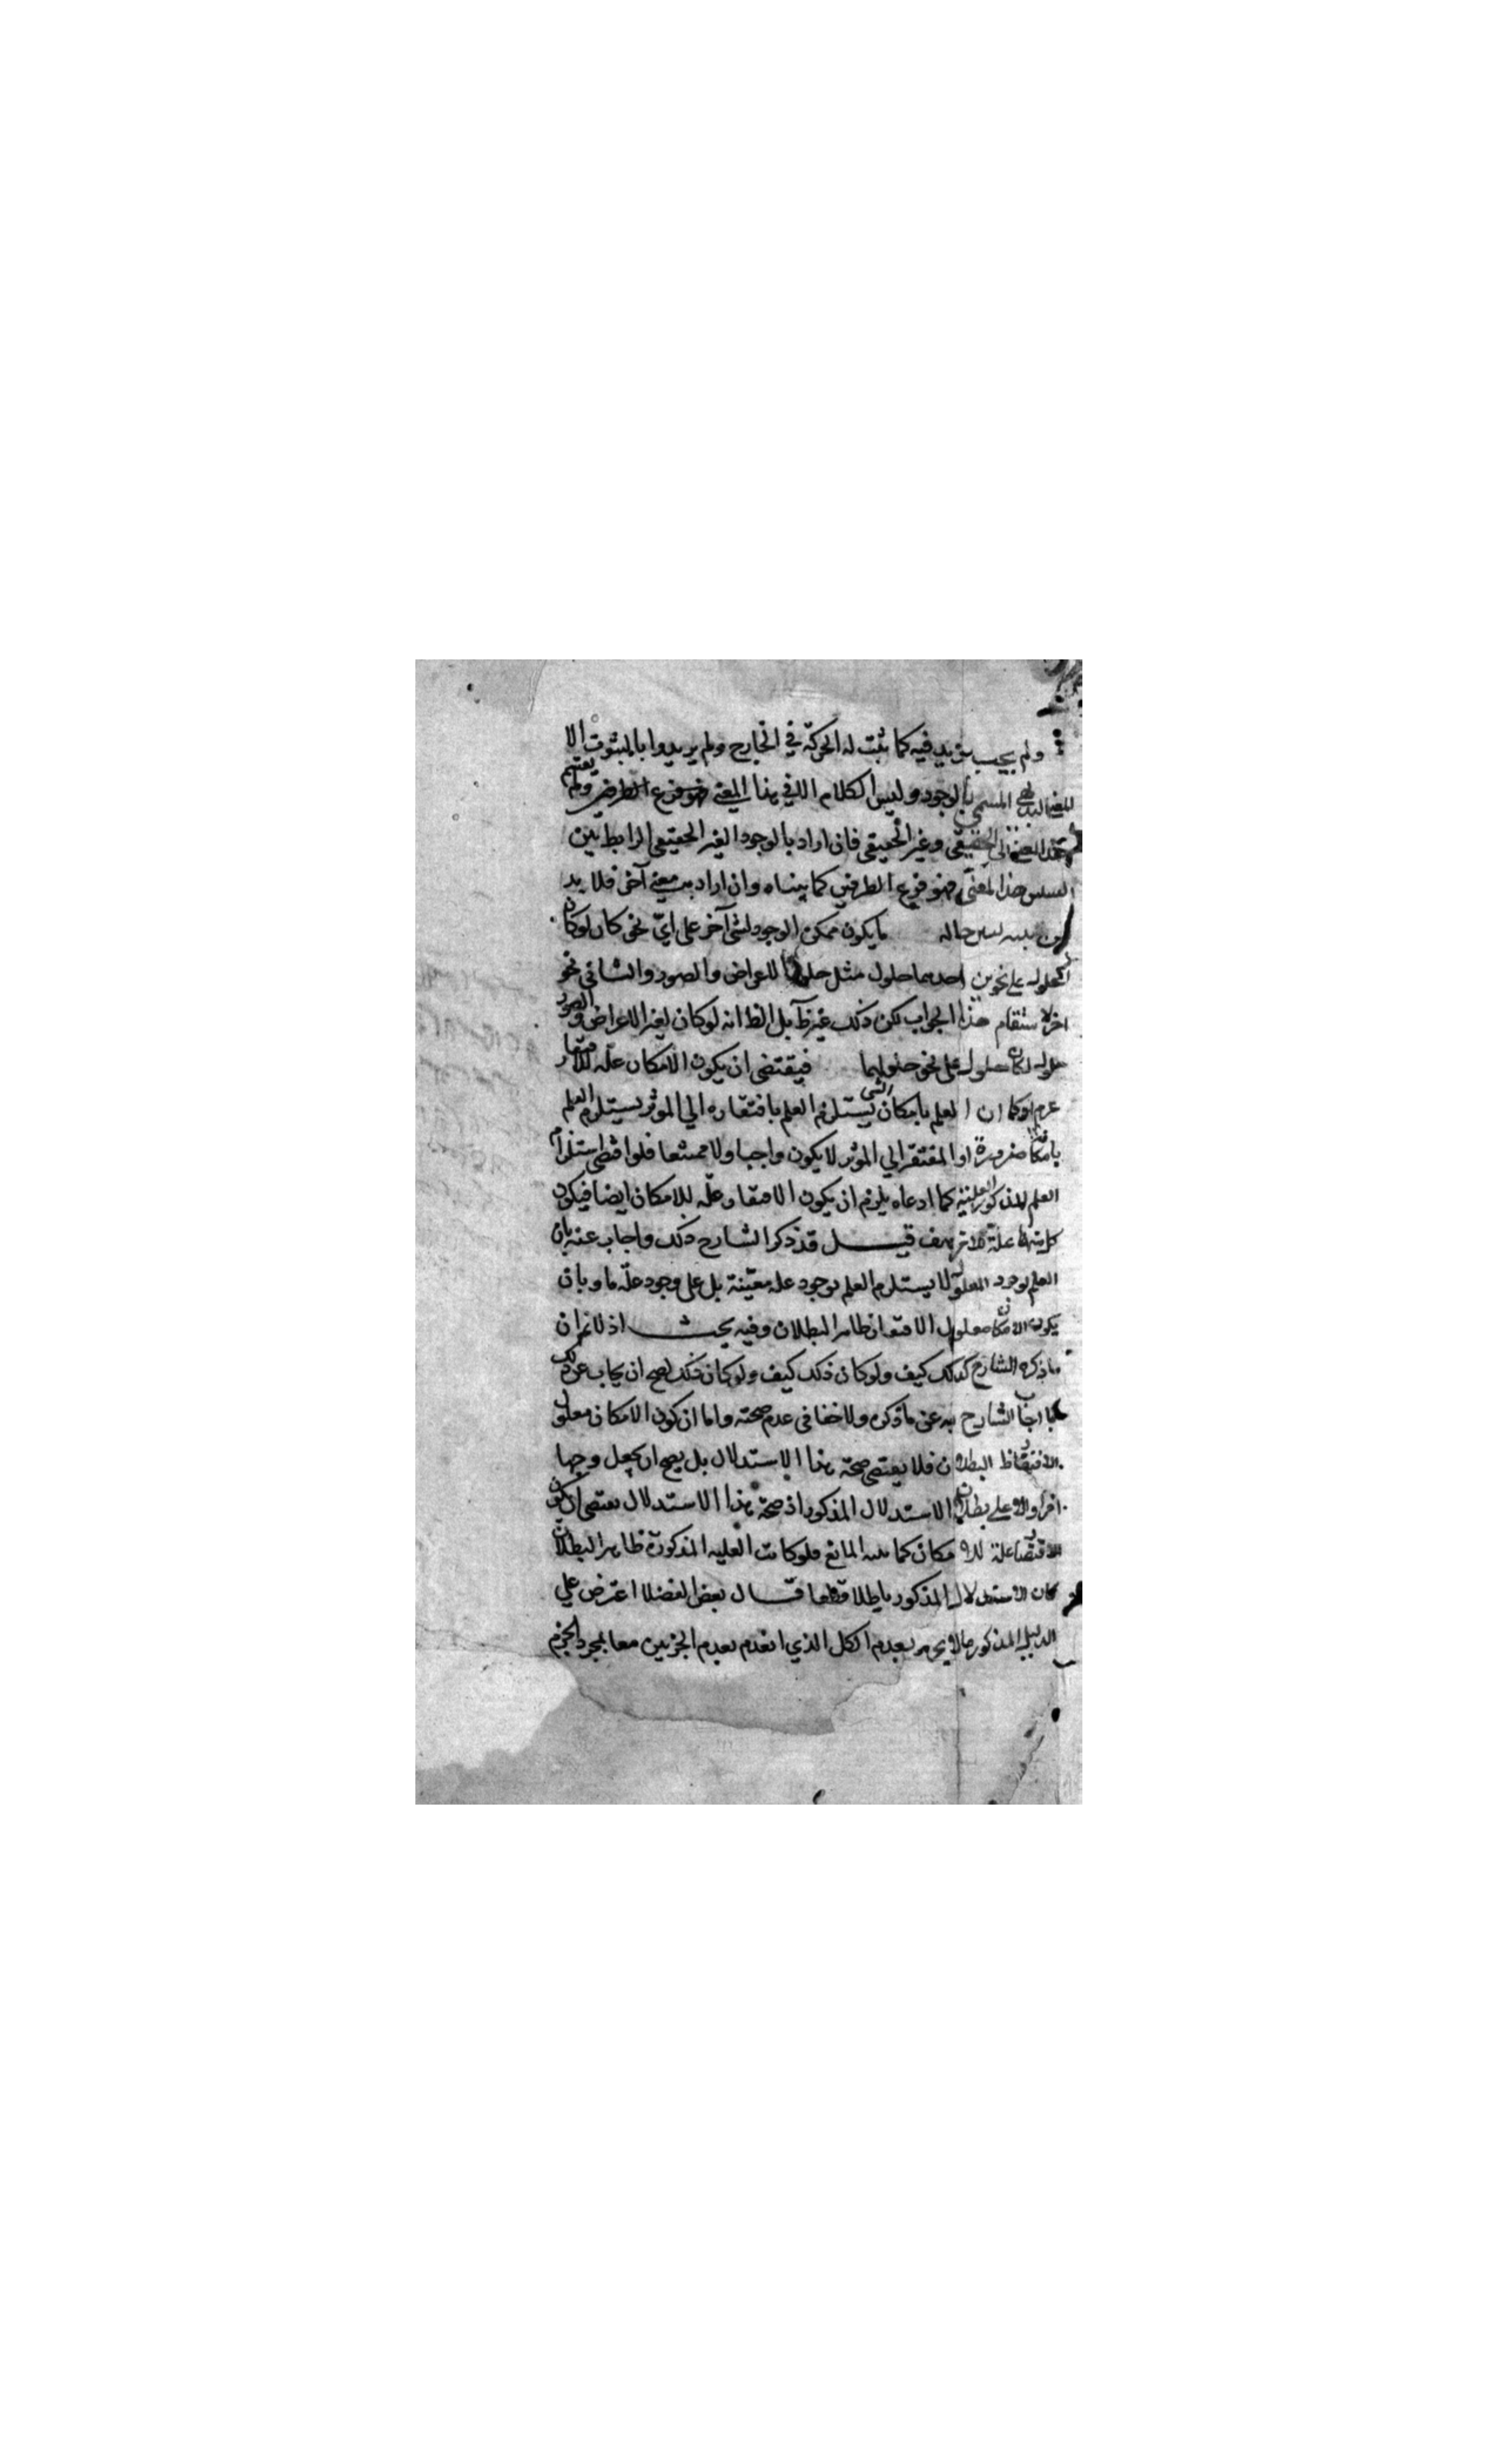 ولم يجب بزيد فيه كما ثبت له الحركة في الخارج ولم يريدوا بالثبوت الا
المعنى البديهي المسمى بالوجود وليس الكلام الا في هذا المعنى فهو فرع الطرفين ولم يقتسم
هذا المعنى الى الحقيقي وغير الحقيقي فان اراد بالوجود الغير الحقيقي الرابط بين
هذا المعنى فهو فرع الطرفين كما بيناه وان اراد به معنى آخر فلا بد
من حاله ما يكون ممكن الوجود لشئ آخر على اي نحو كان لو كان
الحلول على نحوين احدهما حلول مثل حلول الاعراض والصور والثاني نحو
اخر لاستقام هذا الجواب لكن ذلك غير ظ بل الظ انه لو كان لغير الاعراض والصور
حلول لكان حلوله على نحو حلولهما فيقتضي ان يكون الامكان علة للافتقار
كما ان العلم بامكان الشئ يستلزم العلم بافتقاره الي الموثر يستلزم العلم
بامكانه ضرورة ان المفتقر الي الموثر لا يكون واجبا ولا ممتنعا فلو اقتضى استلزام
العلم المذكور العلية كما ادعاه يلزم ان يكون الافتقار علة للامكان ايضا فيكون
كل منهما علة للاخر هف قيل قد ذكر الشارح ذلك واجاب عنه بان
العلم بوجود المعلول لا يستلزم العلم بوجود علة معينة بل على وجود علة ما وبان
يكون الامكان معلول الافتقار ظاهر البطلان وفيه بحث اذ لا نم ان
ما ذكره الشارح كذلك كيف ولو كان ذلك كيف ولو كان ذلك لصح ان يجاب عن ذلك
بما اجاب الشارح به عن ما ذكره ولا خفا في عدم صحته واما ان كون الامكان معلول
الافتقار ظ البطلان فلا يقتضي صحة هذا الاستدلال بل يصح ان يجعل وجها
اخر دالا على بطلان الاستدلال المذكور اذ صحة هذا الاستدلال يقتضي ان يكون
الافتقار علة للامكان كما بينه المانع فلو كانت العلية المذكورة ظاهر البطلان
كان الاستدلال المذكور باطلا قطعا قال بعض الفضلا اعترض علي
الدليل المذكور بعدم الكل الذي انعدم بعدم الجزئين معا بمجرد الجزم